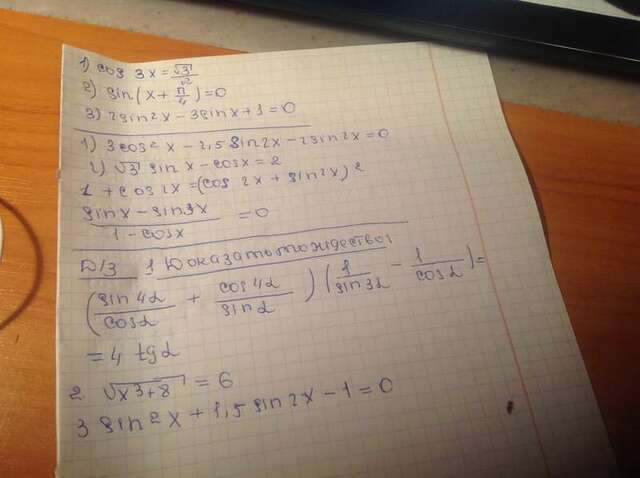 1) cos 3x = √3/2
2) sin(x + π/4) = 0
3) 2sin²x - 3sinx + 1 = 0
1) 3cos²x - 2,5 sin2x - 2sin²x = 0
2) √3 sinx - cosx = 2
1 + cos2x = (cos2x + sin2x)²
sinx - sin3x / 1 - cosx = 0
Д/З 1 Доказать тождество:
(sin4α/cosα + cos4α/sinα)(1/sin3α - 1/cosα) =
= 4 tgα
2. √x3+8 = 6
3 sin²x + 1,5 sin2x - 1 = 0